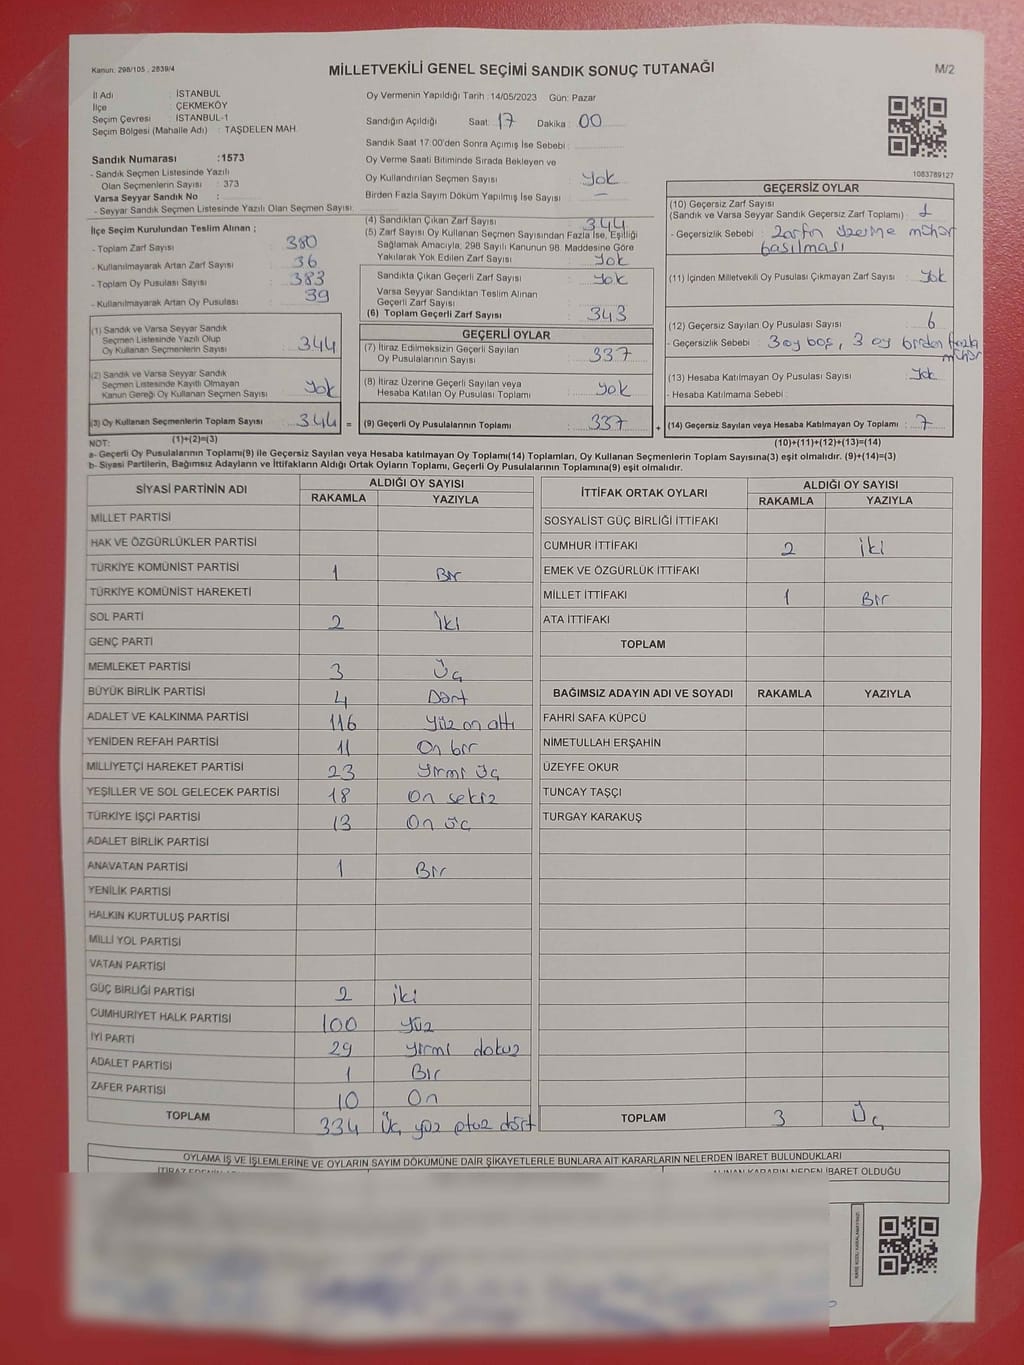 Kanun: 298/105 , 2839/4
MİLLETVEKİLİ GENEL SEÇİMİ SANDIK SONUÇ TUTANAĞI
M/2
İl Adı : İSTANBUL
İlçe : ÇEKMEKÖY
Seçim Çevresi : İSTANBUL-1
Seçim Bölgesi (Mahalle Adı) : TAŞDELEN MAH.
Oy Vermenin Yapıldığı Tarih :14/05/2023 Gün: Pazar
Sandığın Açıldığı Saat: 17 Dakika : 00
Sandık Saat 17:00'den Sonra Açmış İse Sebebi :
Oy Verme Saati Bitiminde Sırada Bekleyen ve
Oy Kullandırılan Seçmen Sayısı : Yok
Birden Fazla Sayım Döküm Yapılmış İse Sayısı : —
Sandık Numarası :1573
- Sandık Seçmen Listesinde Yazılı
Olan Seçmenlerin Sayısı : 373
Varsa Seyyar Sandık No :
- Seyyar Sandık Seçmen Listesinde Yazılı Olan Seçmen Sayısı:
İlçe Seçim Kurulundan Teslim Alınan ;
- Toplam Zarf Sayısı : 380
- Kullanılmayarak Artan Zarf Sayısı : 36
- Toplam Oy Pusulası Sayısı : 383
- Kullanılmayarak Artan Oy Pusulası : 39
(1) Sandık ve Varsa Seyyar Sandık
Seçmen Listesinde Yazılı Olup
Oy Kullanan Seçmenlerin Sayısı : 344
(2) Sandık ve Varsa Seyyar Sandık
Seçmen Listesinde Kayıtlı Olmayan
Kanun Gereği Oy Kullanan Seçmen Sayısı : Yok
(3) Oy Kullanan Seçmenlerin Toplam Sayısı : 344 =
(4) Sandıktan Çıkan Zarf Sayısı : 344
(5) Zarf Sayısı Oy Kullanan Seçmen Sayısından Fazla İse, Eşitliği
Sağlamak Amacıyla, 298 Sayılı Kanunun 98. Maddesine Göre
Yakılarak Yok Edilen Zarf Sayısı : Yok
Sandıkta Çıkan Geçerli Zarf Sayısı : Yok
Varsa Seyyar Sandıktan Teslim Alınan
Geçerli Zarf Sayısı :
(6) Toplam Geçerli Zarf Sayısı : 343
GEÇERLİ OYLAR
(7) İtiraz Edilmeksizin Geçerli Sayılan
Oy Pusulalarının Sayısı : 337
(8) İtiraz Üzerine Geçerli Sayılan veya
Hesaba Katılan Oy Pusulası Toplamı : Yok
(9) Geçerli Oy Pusulalarının Toplamı : 337 +
1083789127
GEÇERSİZ OYLAR
(10) Geçersiz Zarf Sayısı
(Sandık ve Varsa Seyyar Sandık Geçersiz Zarf Toplamı) : 1
- Geçersizlik Sebebi : Zarfın üzerine mühür
basılması
(11) İçinden Milletvekili Oy Pusulası Çıkmayan Zarf Sayısı : Yok
(12) Geçersiz Sayılan Oy Pusulası Sayısı : 6
- Geçersizlik Sebebi : 3 oy boş, 3 oy birden fazla
mühür
(13) Hesaba Katılmayan Oy Pusulası Sayısı : Yok
- Hesaba Katılmama Sebebi :
(14) Geçersiz Sayılan veya Hesaba Katılmayan Oy Toplamı : 7
NOT: (1)+(2)=(3)
(10)+(11)+(12)+(13)=(14)
a- Geçerli Oy Pusulalarının Toplamı(9) ile Geçersiz Sayılan veya Hesaba Katılmayan Oy Toplamı(14) Toplamları, Oy Kullanan Seçmenlerin Toplam Sayısına(3) eşit olmalıdır. (9)+(14)=(3)
b- Siyasi Partilerin, Bağımsız Adayların ve İttifakların Aldığı Ortak Oyların Toplamı, Geçerli Oy Pusulalarının Toplamına(9) eşit olmalıdır.
SİYASİ PARTİNİN ADI ALDIĞI OY SAYISI
RAKAMLA YAZIYLA
MİLLET PARTİSİ
HAK VE ÖZGÜRLÜKLER PARTİSİ
TÜRKİYE KOMÜNİST PARTİSİ 1 Bir
TÜRKİYE KOMÜNİST HAREKETİ
SOL PARTİ 2 İki
GENÇ PARTİ
MEMLEKET PARTİSİ 3 Üç
BÜYÜK BİRLİK PARTİSİ 4 Dört
ADALET VE KALKINMA PARTİSİ 116 Yüz on altı
YENİDEN REFAH PARTİSİ 11 On bir
MİLLİYETÇİ HAREKET PARTİSİ 23 Yirmi üç
YEŞİLLER VE SOL GELECEK PARTİSİ 18 On sekiz
TÜRKİYE İŞÇİ PARTİSİ 13 On üç
ADALET BİRLİK PARTİSİ
ANAVATAN PARTİSİ 1 Bir
YENİLİK PARTİSİ
HALKIN KURTULUŞ PARTİSİ
MİLLİ YOL PARTİSİ
VATAN PARTİSİ
GÜÇ BİRLİĞİ PARTİSİ 2 iki
CUMHURİYET HALK PARTİSİ 100 Yüz
İYİ PARTİ 29 Yirmi dokuz
ADALET PARTİSİ 1 Bir
ZAFER PARTİSİ 10 On
TOPLAM 334 Üç yüz otuz dört
İTTİFAK ORTAK OYLARI ALDIĞI OY SAYISI
RAKAMLA YAZIYLA
SOSYALİST GÜÇ BİRLİĞİ İTTİFAKI
CUMHUR İTTİFAKI 2 iki
EMEK VE ÖZGÜRLÜK İTTİFAKI
MİLLET İTTİFAKI 1 Bir
ATA İTTİFAKI
TOPLAM
BAĞIMSIZ ADAYIN ADI VE SOYADI RAKAMLA YAZIYLA
FAHRİ SAFA KÜPCÜ
NİMETULLAH ERŞAHİN
ÜZEYFE OKUR
TUNCAY TAŞÇI
TURGAY KARAKUŞ
TOPLAM 3 Üç
OYLAMA İŞ VE İŞLEMLERİNE VE OYLARIN SAYIM DÖKÜMÜNE DAİR ŞİKAYETLERLE BUNLARA AİT KARARLARIN NELERDEN İBARET BULUNDUKLARI
ALINAN KARARIN NEDEN İBARET OLDUĞU
KARE KODU KARALAMAYINIZ!